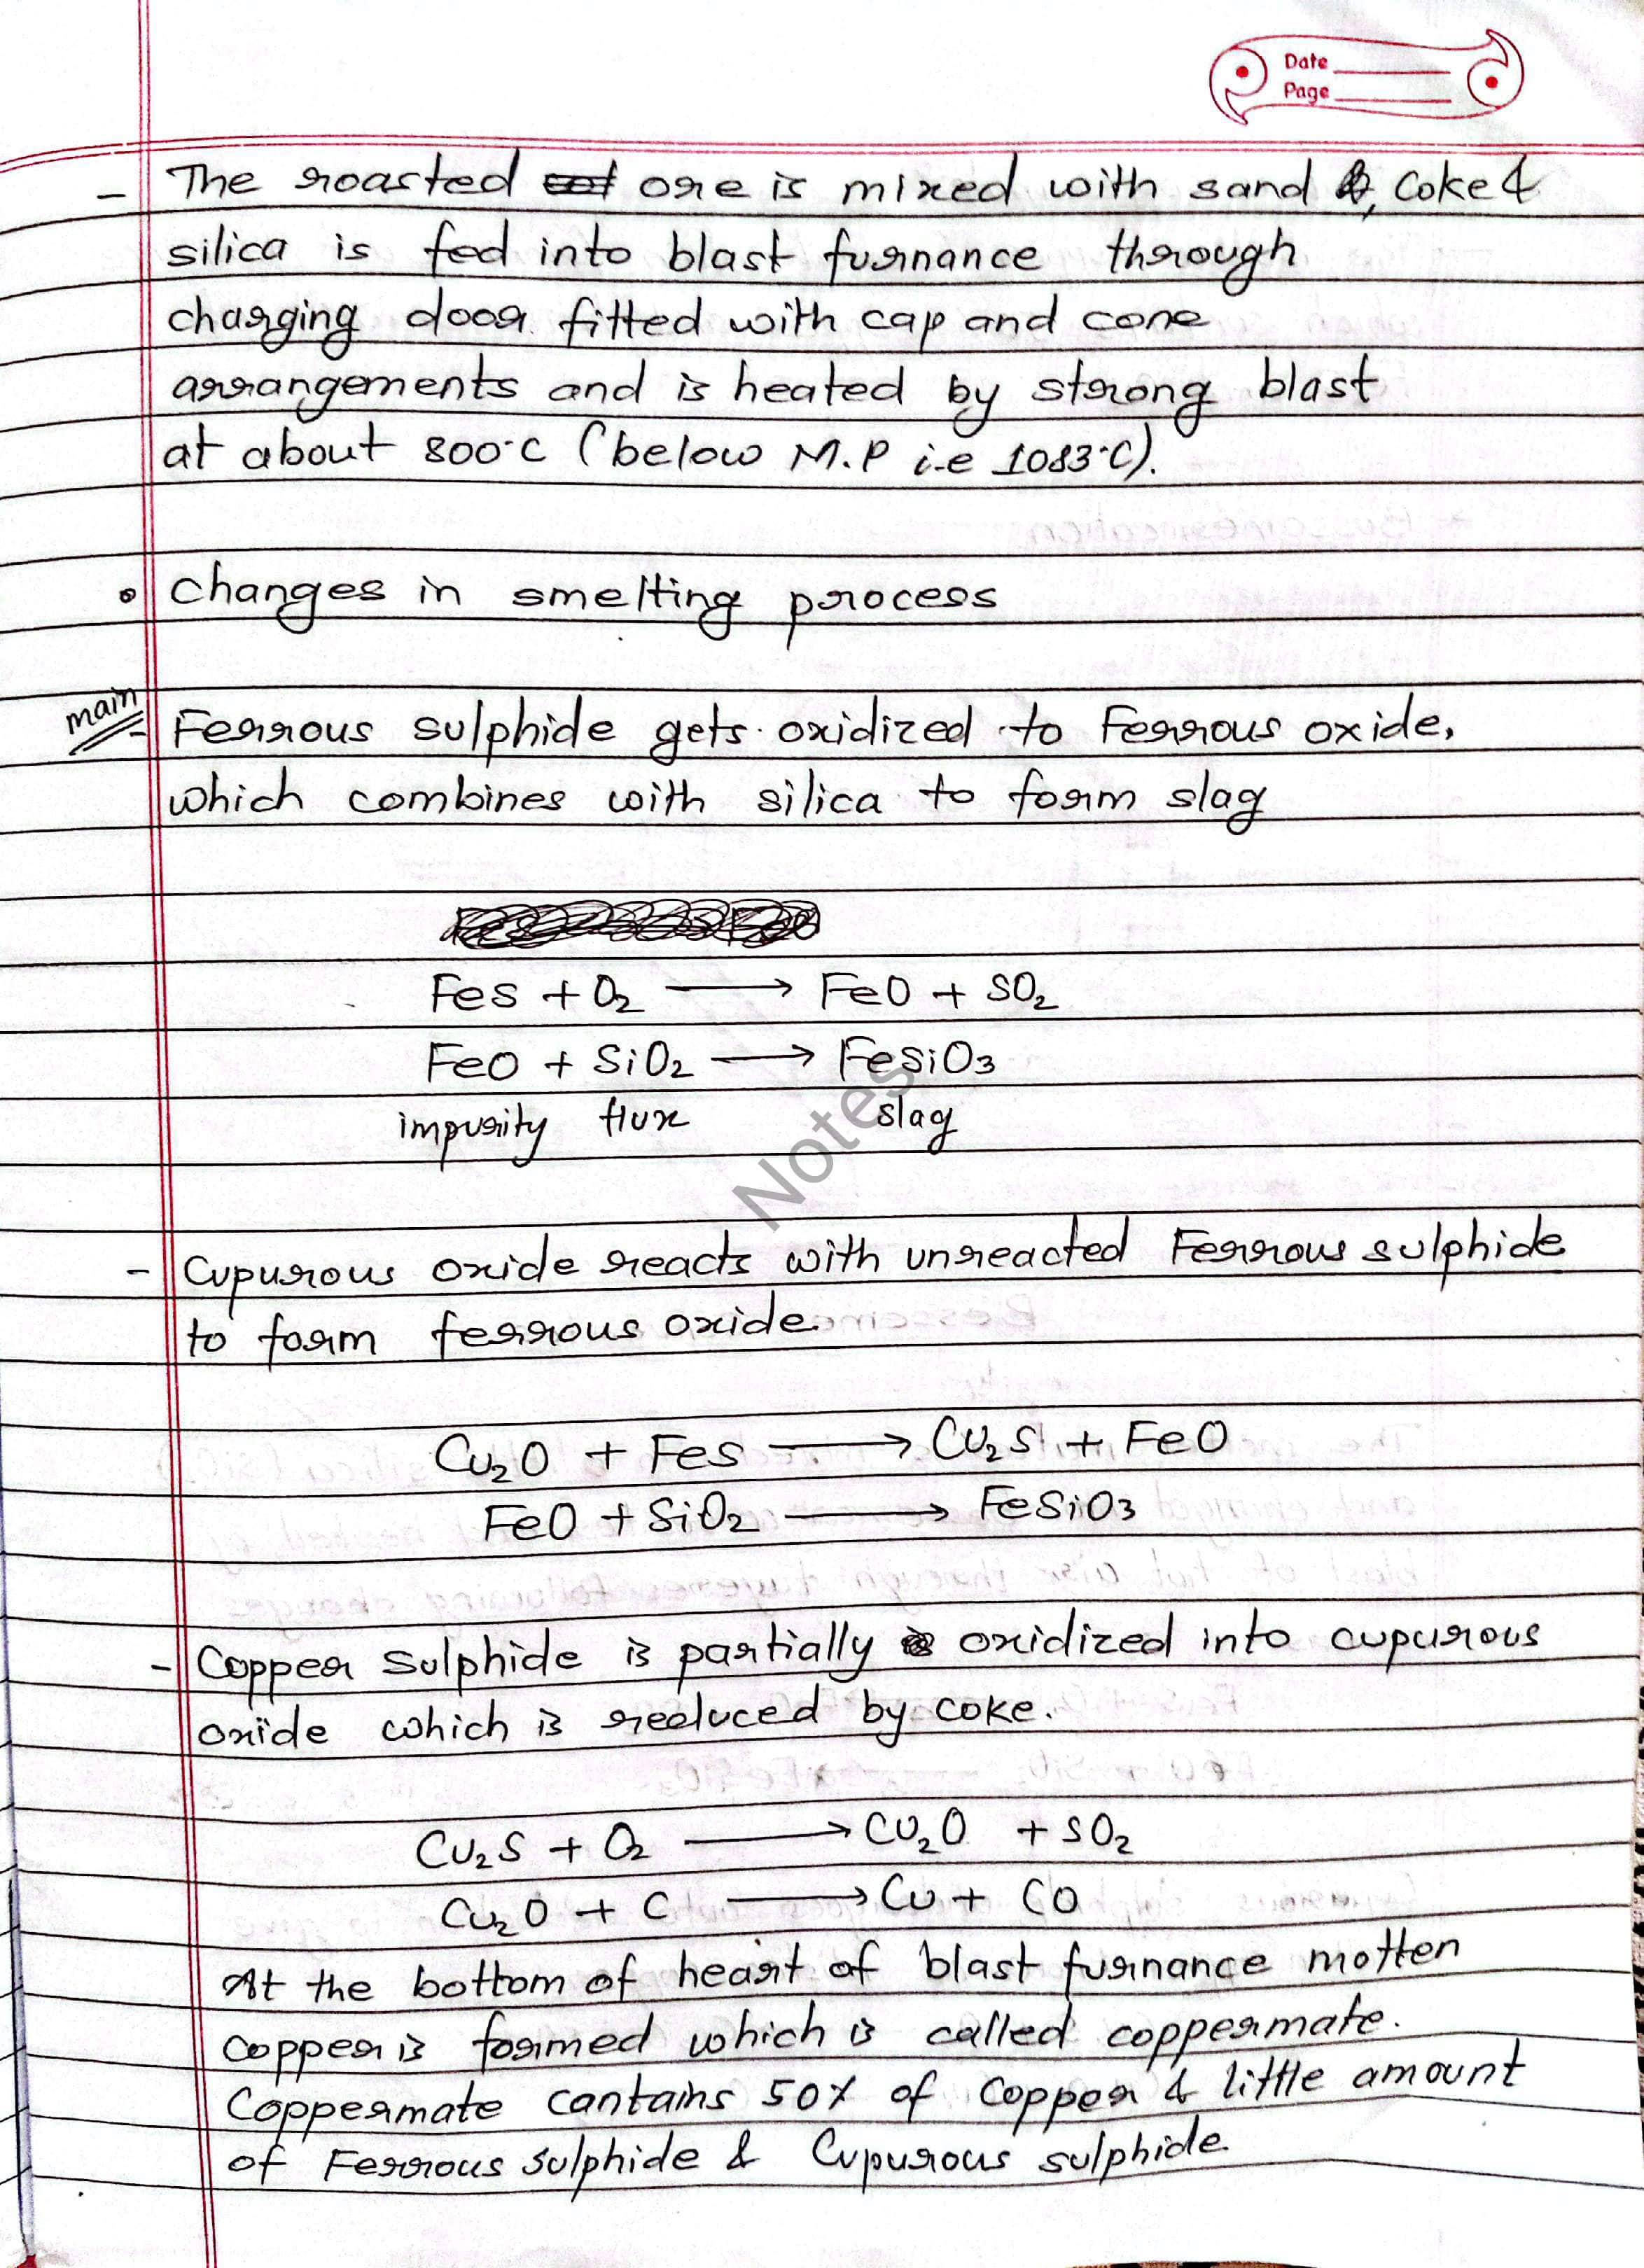 Date
Page
- The roasted ore is mixed with sand &, coke &
silica is fed into blast furnance through
charging door fitted with cap and cone
arrangements and is heated by strong blast
at about 800°C (below M.P i.e 1083°C).
• Changes in smelting process
main
- Ferrous sulphide gets oxidized to Ferrous oxide,
which combines with silica to form slag
FeS + O2 ⟶ FeO + SO2
FeO + SiO2 ⟶ FeSiO3
impurity flux slag
Notes
- Cupurous oxide reacts with unreacted Ferrous sulphide
to form ferrous oxide
Cu2O + FeS ⟶ Cu2S + FeO
FeO + SiO2 ⟶ FeSiO3
- Copper sulphide is partially oxidized into cupurous
oxide which is reduced by coke.
Cu2S + O2 ⟶ Cu2O + SO2
Cu2O + C ⟶ Cu + CO
At the bottom of heart of blast furnance motten
copper is formed which is called coppermate.
Coppermate contains 50% of Copper & little amount
of Ferrous sulphide & Cupurous sulphide